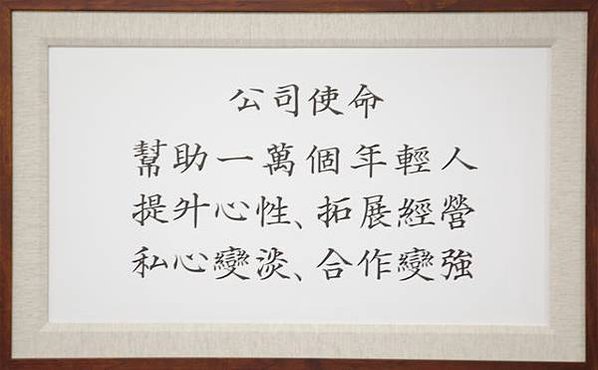 公司使命
幫助一萬個年輕人
提升心性、拓展經營
私心變淡、合作變強